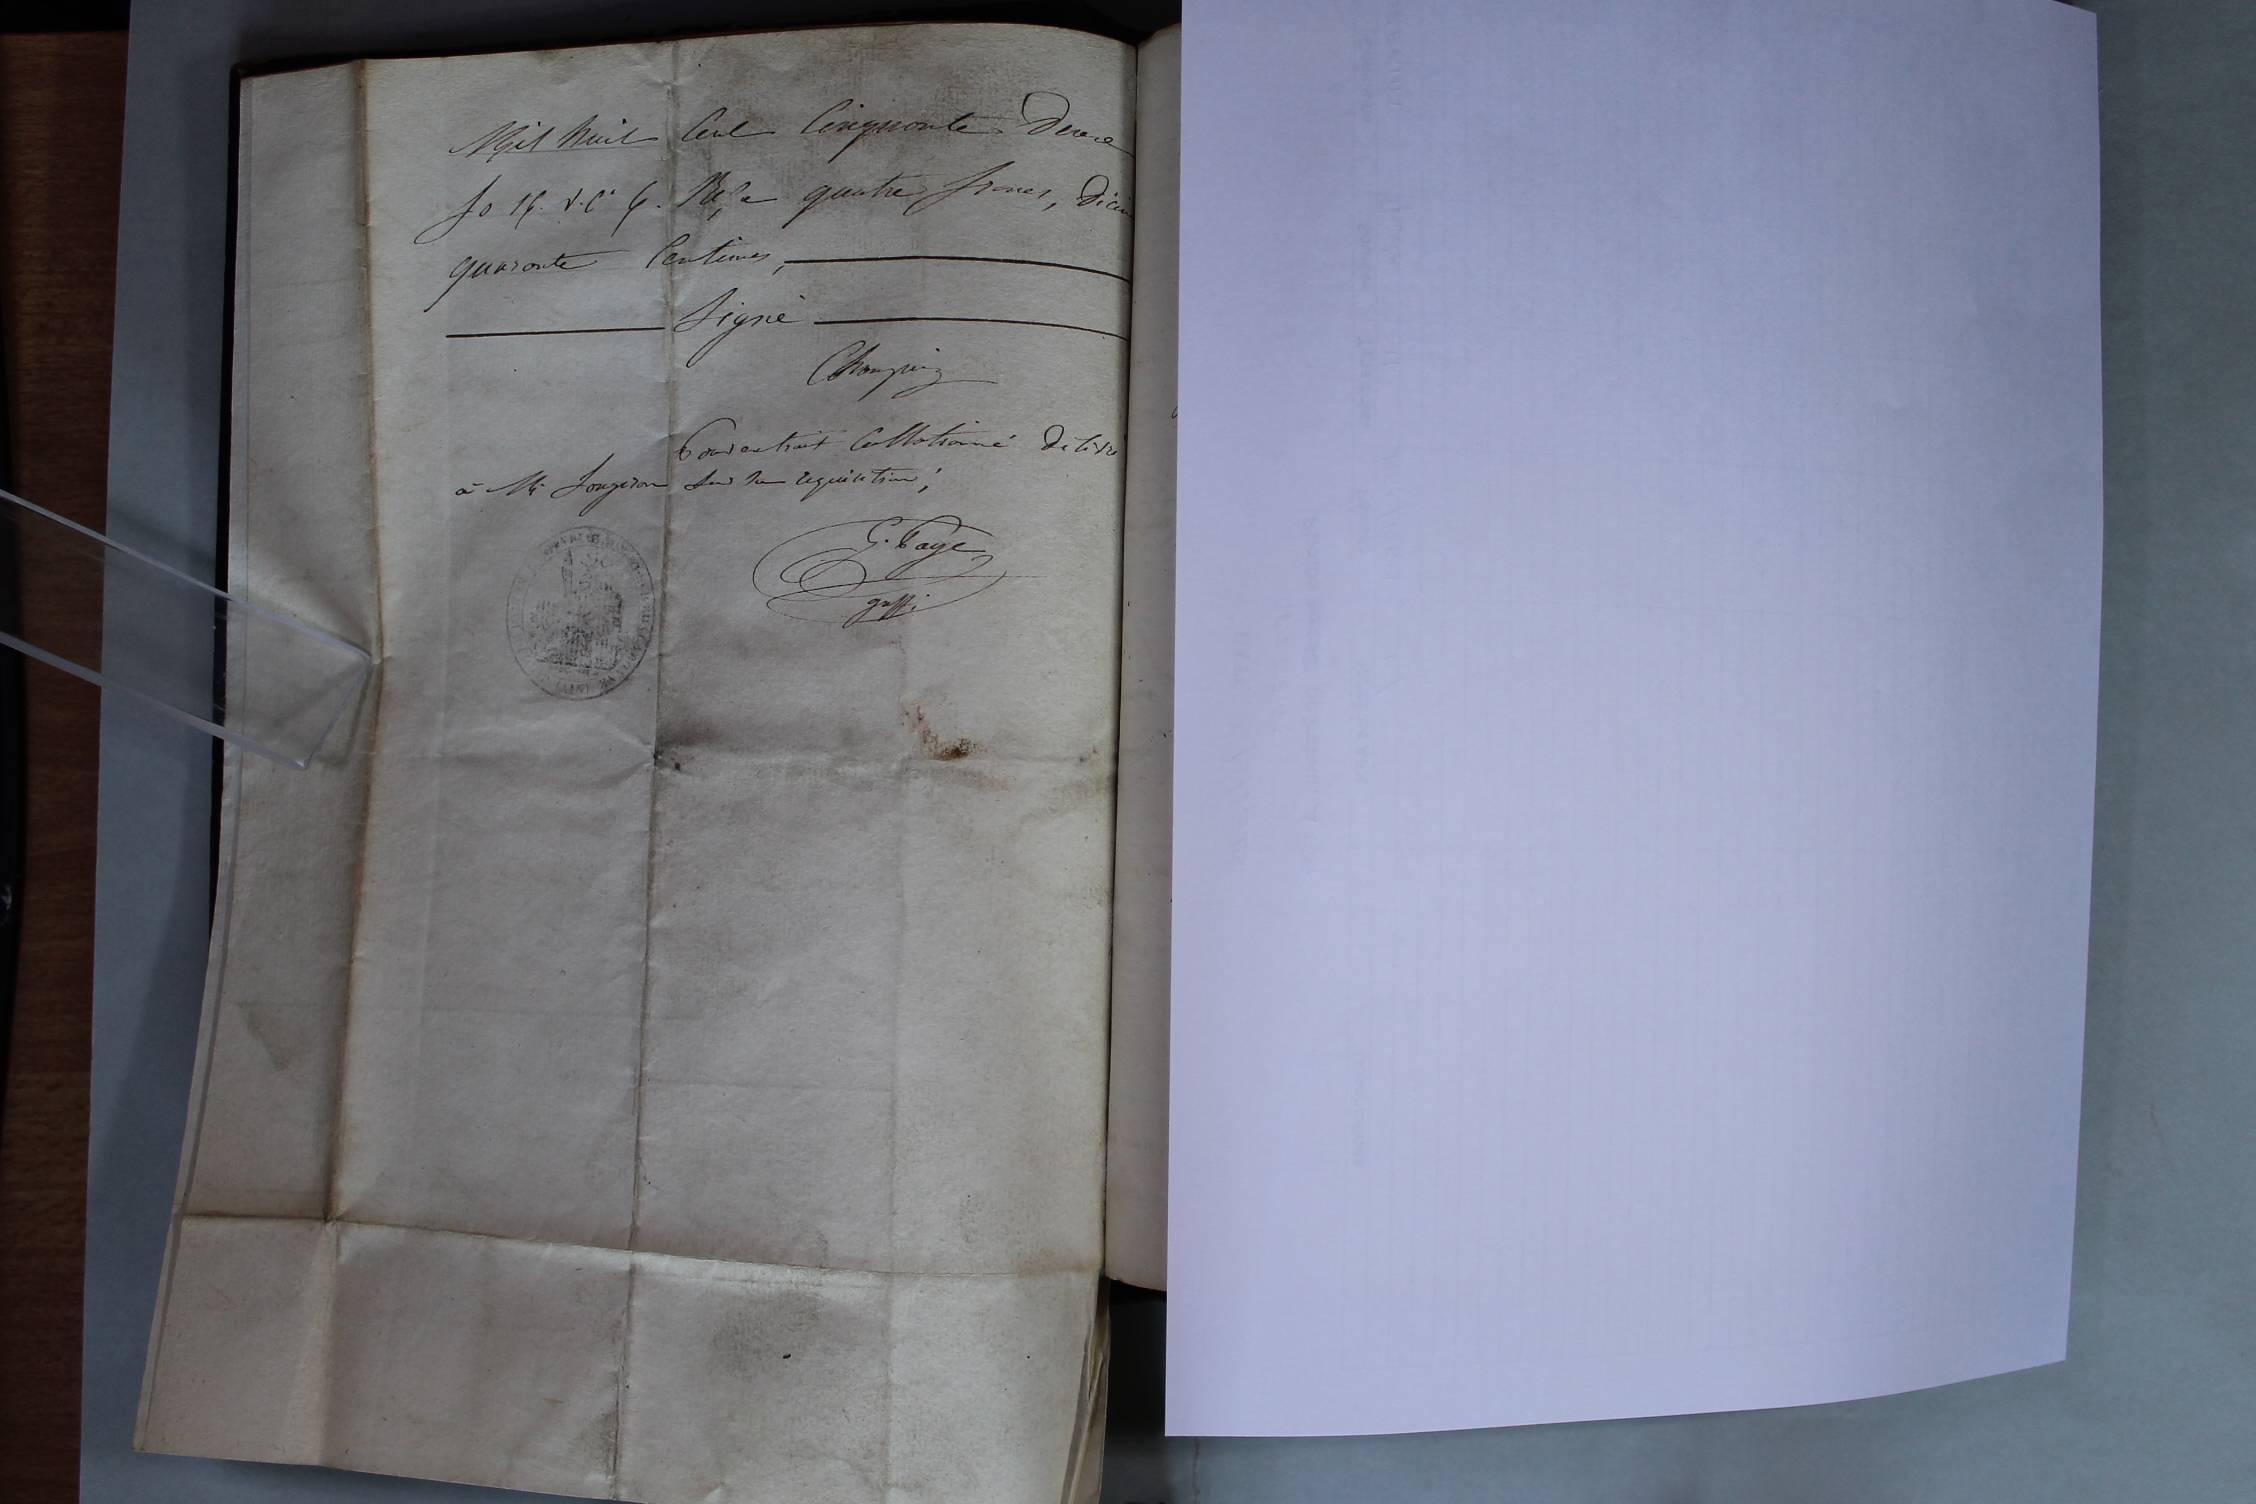 Mil huit Cent Cinquante Deux
fo 15. v. Cⁿ 6. quatre francs, Décime
quarante Centimes,
Signé
Pour extrait Collationné Délivré
à Mr Songeron sur sa réquisition;
G. Page
greffi